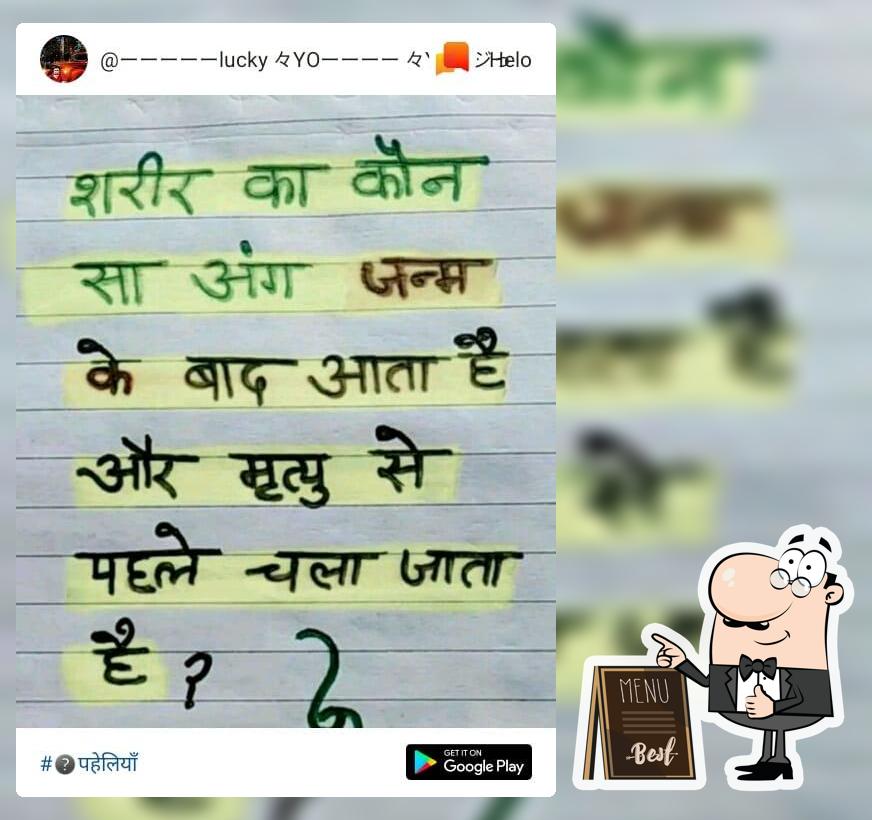 @ーーーーーlucky 々YOーーーー 々 Helo
शरीर का कौन
सा अंग जन्म
के बाद आता है
और मृत्यु से
पहले चला जाता
है ?
#?पहेलियाँ
GET IT ON
Google Play
MENU
Best